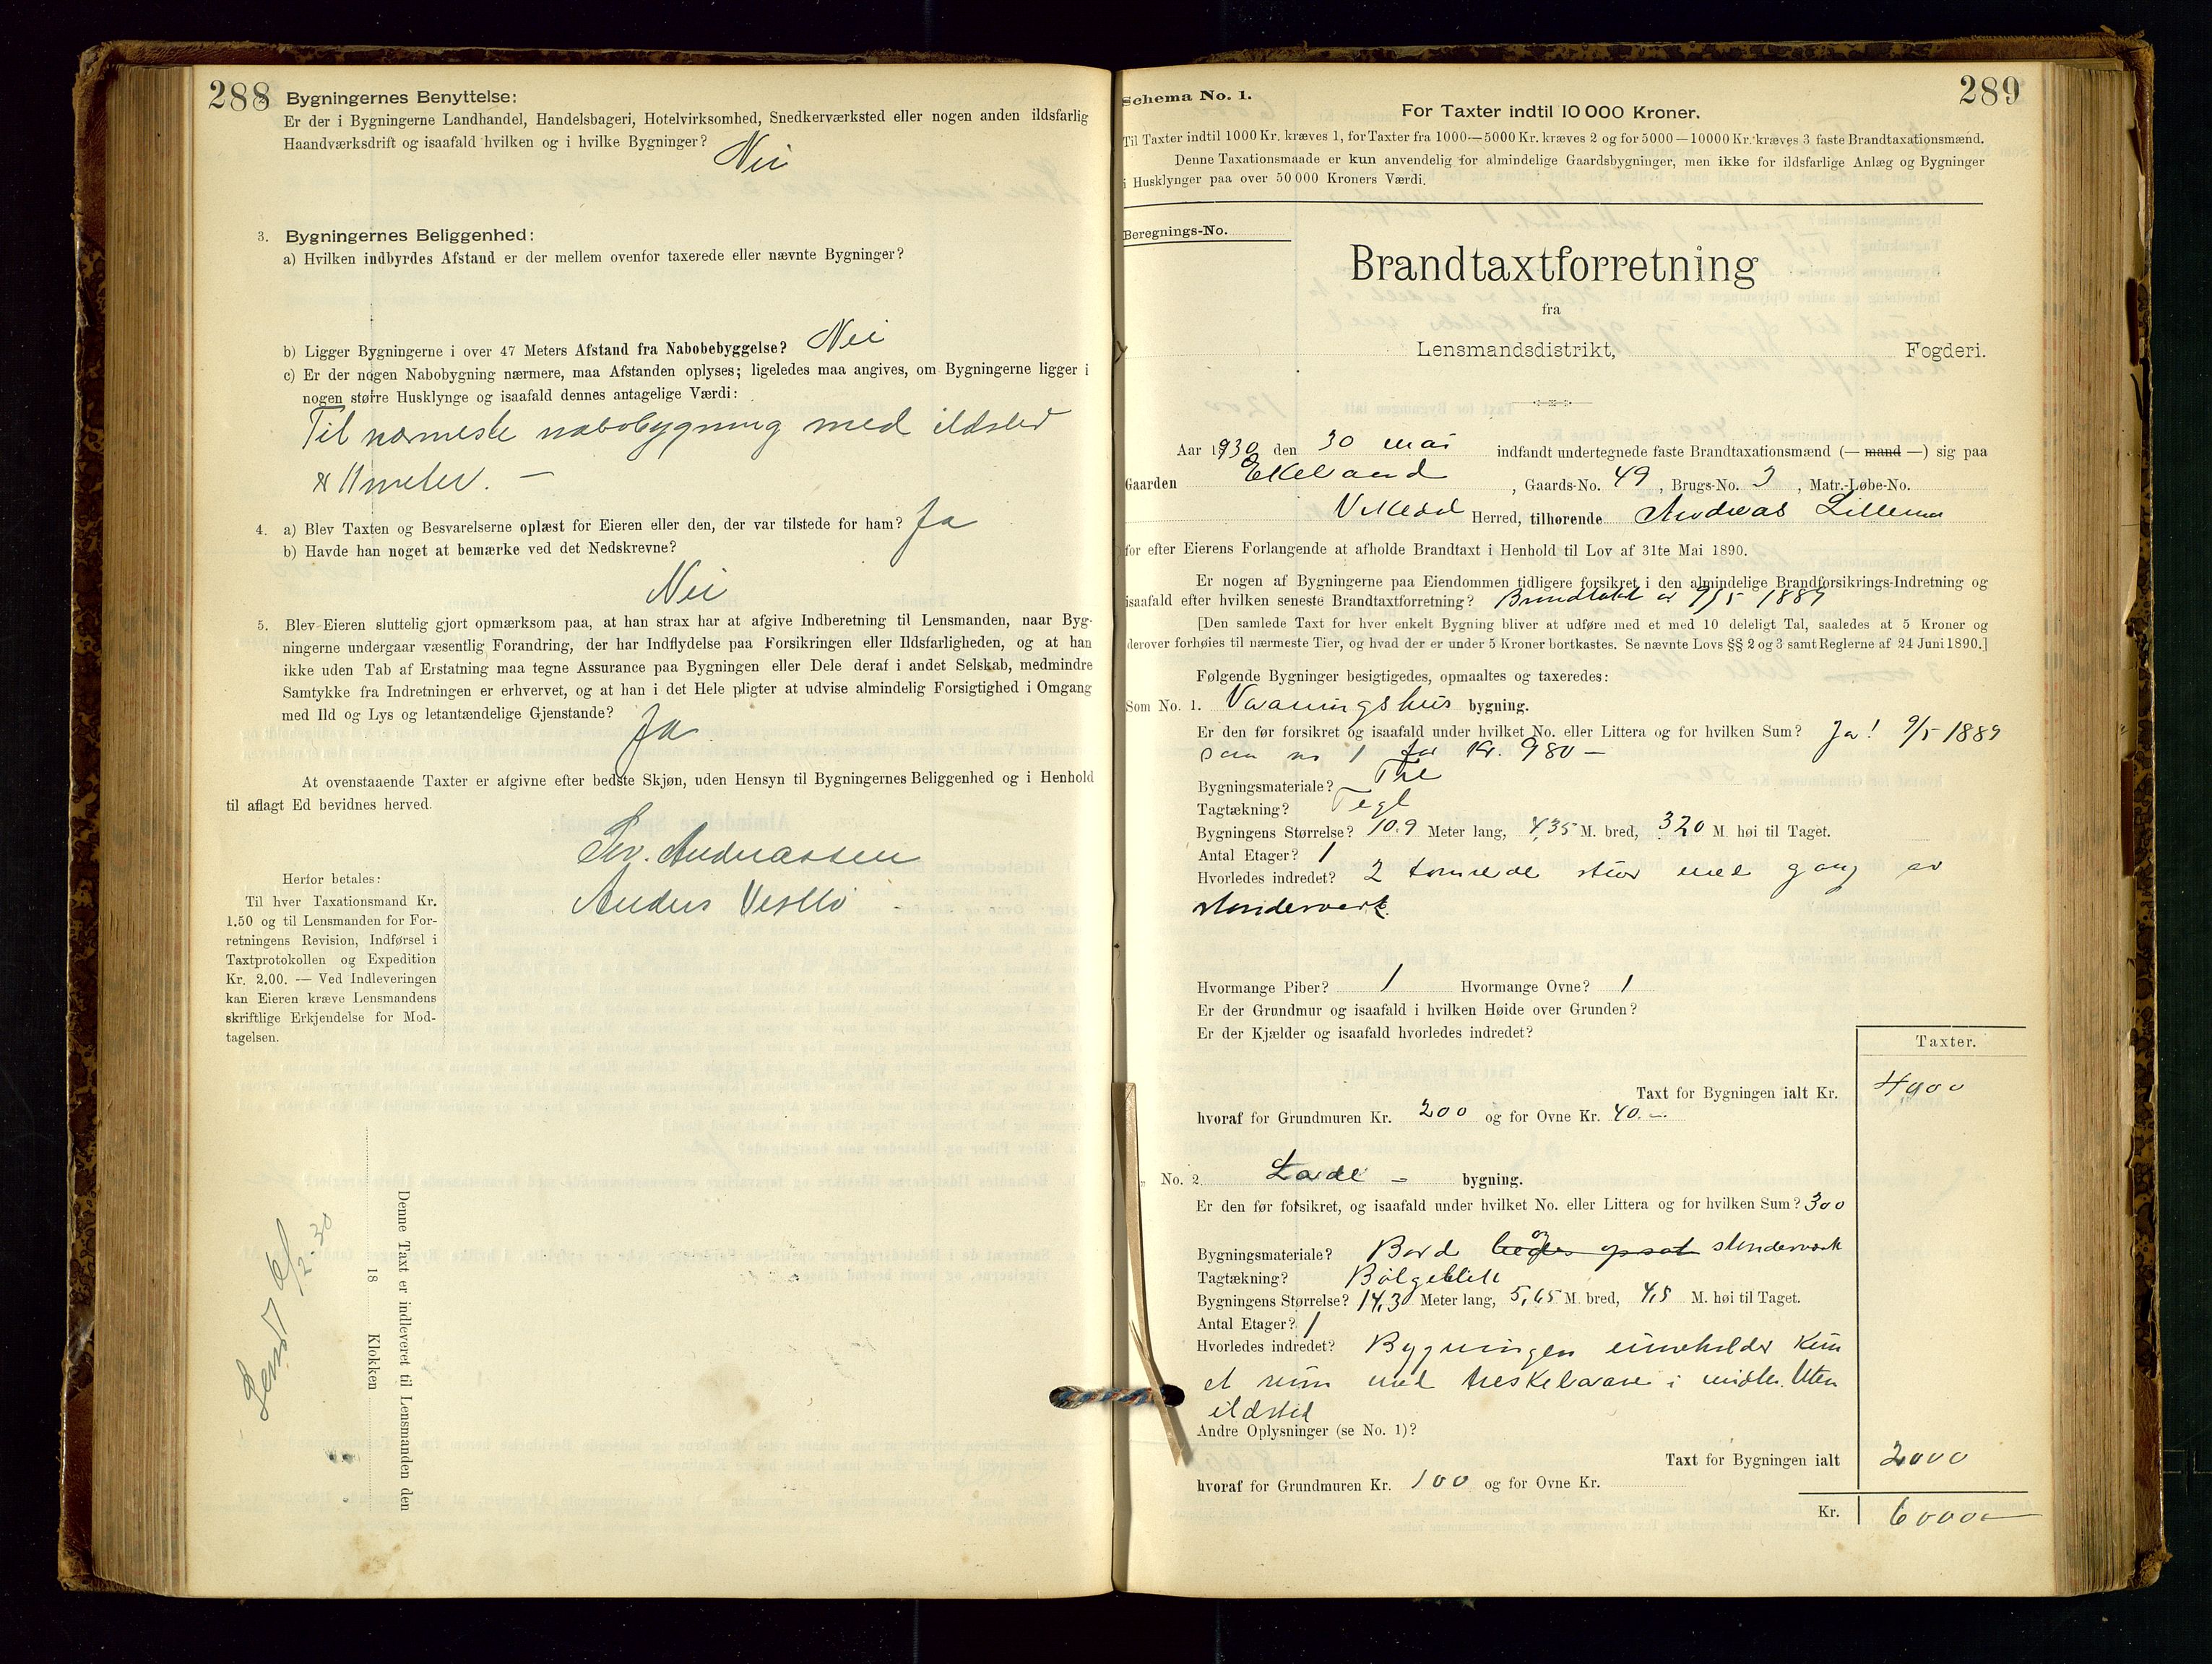 288
Bygningernes Benyttelse:
Er der i Bygningerne Landhandel, Handelsbageri, Hotelvirksomhed, Snedkerværksted eller nogen anden ildsfarlig
Haandværksdrift og isaafald hvilken og i hvilke Bygninger?
Nei
3. Bygningernes Beliggenhed:
a) Hvilken indbyrdes Afstand er der mellem ovenfor taxerede eller nævnte Bygninger?
b) Ligger Bygningerne i over 47 Meters Afstand fra Nabobebyggelse? Nei
c) Er der nogen Nabobygning nærmere, maa Afstanden oplyses; ligeledes maa angives, om Bygningerne ligger i
nogen større Husklynge og isaafald dennes antagelige Værdi:
Til nærmeste nabobygning med ildsted
11 meter. —
4. a) Blev Taxten og Besvarelserne oplæst for Eieren eller den, der var tilstede for ham? Ja
b) Havde han noget at bemærke ved det Nedskrevne?
Nei
5. Blev Eieren sluttelig gjort opmærksom paa, at han strax har at afgive Indberetning til Lensmanden, naar Byg-
ningerne undergaar væsentlig Forandring, der har Indflydelse paa Forsikringen eller Ildsfarligheden, og at han
ikke uden Tab af Erstatning maa tegne Assurance paa Bygningen eller Dele deraf i andet Selskab, medmindre
Samtykke fra Indretningen er erhvervet, og at han i det Hele pligter at udvise almindelig Forsigtighed i Omgang
med Ild og Lys og letantændelige Gjenstande? Ja
At ovenstaaende Taxter er afgivne efter bedste Skjøn, uden Hensyn til Bygningernes Beliggenhed og i Henhold
til aflagt Ed bevidnes herved.
Andreassen
Anders
Herfor betales:
Til hver Taxationsmand Kr.
1.50 og til Lensmanden for For-
retningens Revision, Indførsel i
Taxtprotokollen og Expedition
Kr. 2.00. — Ved Indleveringen
kan Eieren kræve Lensmandens
skriftlige Erkjendelse for Mod-
tagelsen.
Denne Taxt er indleveret til Lensmanden den
18 Klokken
289
Schema No. 1.
For Taxter indtil 10 000 Kroner.
Til Taxter indtil 1000 Kr. kræves 1, for Taxter fra 1000—5000 Kr. kræves 2 og for 5000—10000 Kr. kræves 3 faste Brandtaxationsmænd.
Denne Taxationsmaade er kun anvendelig for almindelige Gaardsbygninger, men ikke for ildsfarlige Anlæg og Bygninger
i Husklynger paa over 50 000 Kroners Værdi.
Beregnings-No.
Brandtaxtforretning
fra
Lensmandsdistrikt, Fogderi.
Aar 1930 den 30 mai indfandt undertegnede faste Brandtaxationsmænd (— mand —) sig paa
Gaarden Ekeland, Gaards-No. 49, Brugs-No. 3, Matr.-Løbe-No.
Vikedal Herred, tilhørende Andreas
for efter Eierens Forlangende at afholde Brandtaxt i Henhold til Lov af 31te Mai 1890.
Er nogen af Bygningerne paa Eiendommen tidligere forsikret i den almindelige Brandforsikrings-Indretning og
isaafald efter hvilken seneste Brandtaxtforretning? Brandtakt av 9/5 1889
[Den samlede Taxt for hver enkelt Bygning bliver at udføre med et med 10 deleligt Tal, saaledes at 5 Kroner og
derover forhøies til nærmeste Tier, og hvad der er under 5 Kroner bortkastes. Se nævnte Lovs §§ 2 og 3 samt Reglerne af 24 Juni 1890.]
Følgende Bygninger besigtigedes, opmaaltes og taxeredes:
Som No. 1. Vaaningshus bygning.
Er den før forsikret og isaafald under hvilket No. eller Littera og for hvilken Sum? Ja! 9/5 1889
som no 1 for Kr. 980 —
Bygningsmateriale? Tre
Tagtækning? Tegl
Bygningens Størrelse? 10.9 Meter lang, 4,35 M. bred, 320 M. høi til Taget.
Antal Etager? 1
Hvorledes indredet? 2 tømrede stuer med gang av
stenderverk.
Hvormange Piber? 1 Hvormange Ovne? 1
Er der Grundmur og isaafald i hvilken Høide over Grunden?
Er der Kjælder og isaafald hvorledes indredet?
Taxter.
Taxt for Bygningen ialt Kr. 4000
hvoraf for Grundmuren Kr. 200 og for Ovne Kr. 40.—
„ No. 2 Lade - bygning.
Er den før forsikret, og isaafald under hvilket No. eller Littera og for hvilken Sum? 300
Bygningsmateriale? Bord og stenderverk
Tagtækning? Bølgeblikk
Bygningens Størrelse? 14,30 Meter lang, 5,65 M. bred, 4,5 M. høi til Taget.
Antal Etager? 1
Hvorledes indredet? Bygningen inneholder kun
et rum med treskelaave i midten. Uten
ildsted
Andre Oplysninger (se No. 1)?
Taxt for Bygningen ialt 2000
hvoraf for Grundmuren Kr. 100 og for Ovne Kr.
Kr. 6000 —